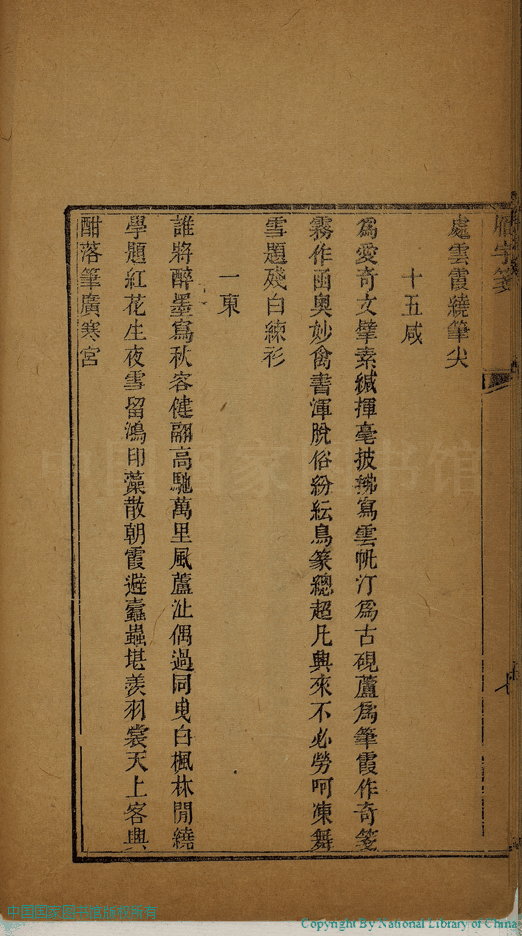 雁字箋
處雲霞繞筆尖
十五咸
爲愛奇文擘素緘揮毫披拂寫雲帆汀爲古硯蘆爲筆霞作奇箋
霧作函奧妙禽書渾脫俗紛紜鳥篆總超凡興來不必勞呵凍舞
雪題殘白練衫
一東
誰將醉墨寫秋容健翮高馳萬里風蘆沚偶過同曳白楓林閒繞
學題紅花生夜雪留鴻印藻散朝霞避蠹蟲堪羨羽裳天上客興
酣落筆廣寒宮
中国国家图书馆
中国国家图书馆版权所有
Copyright By National Library of China